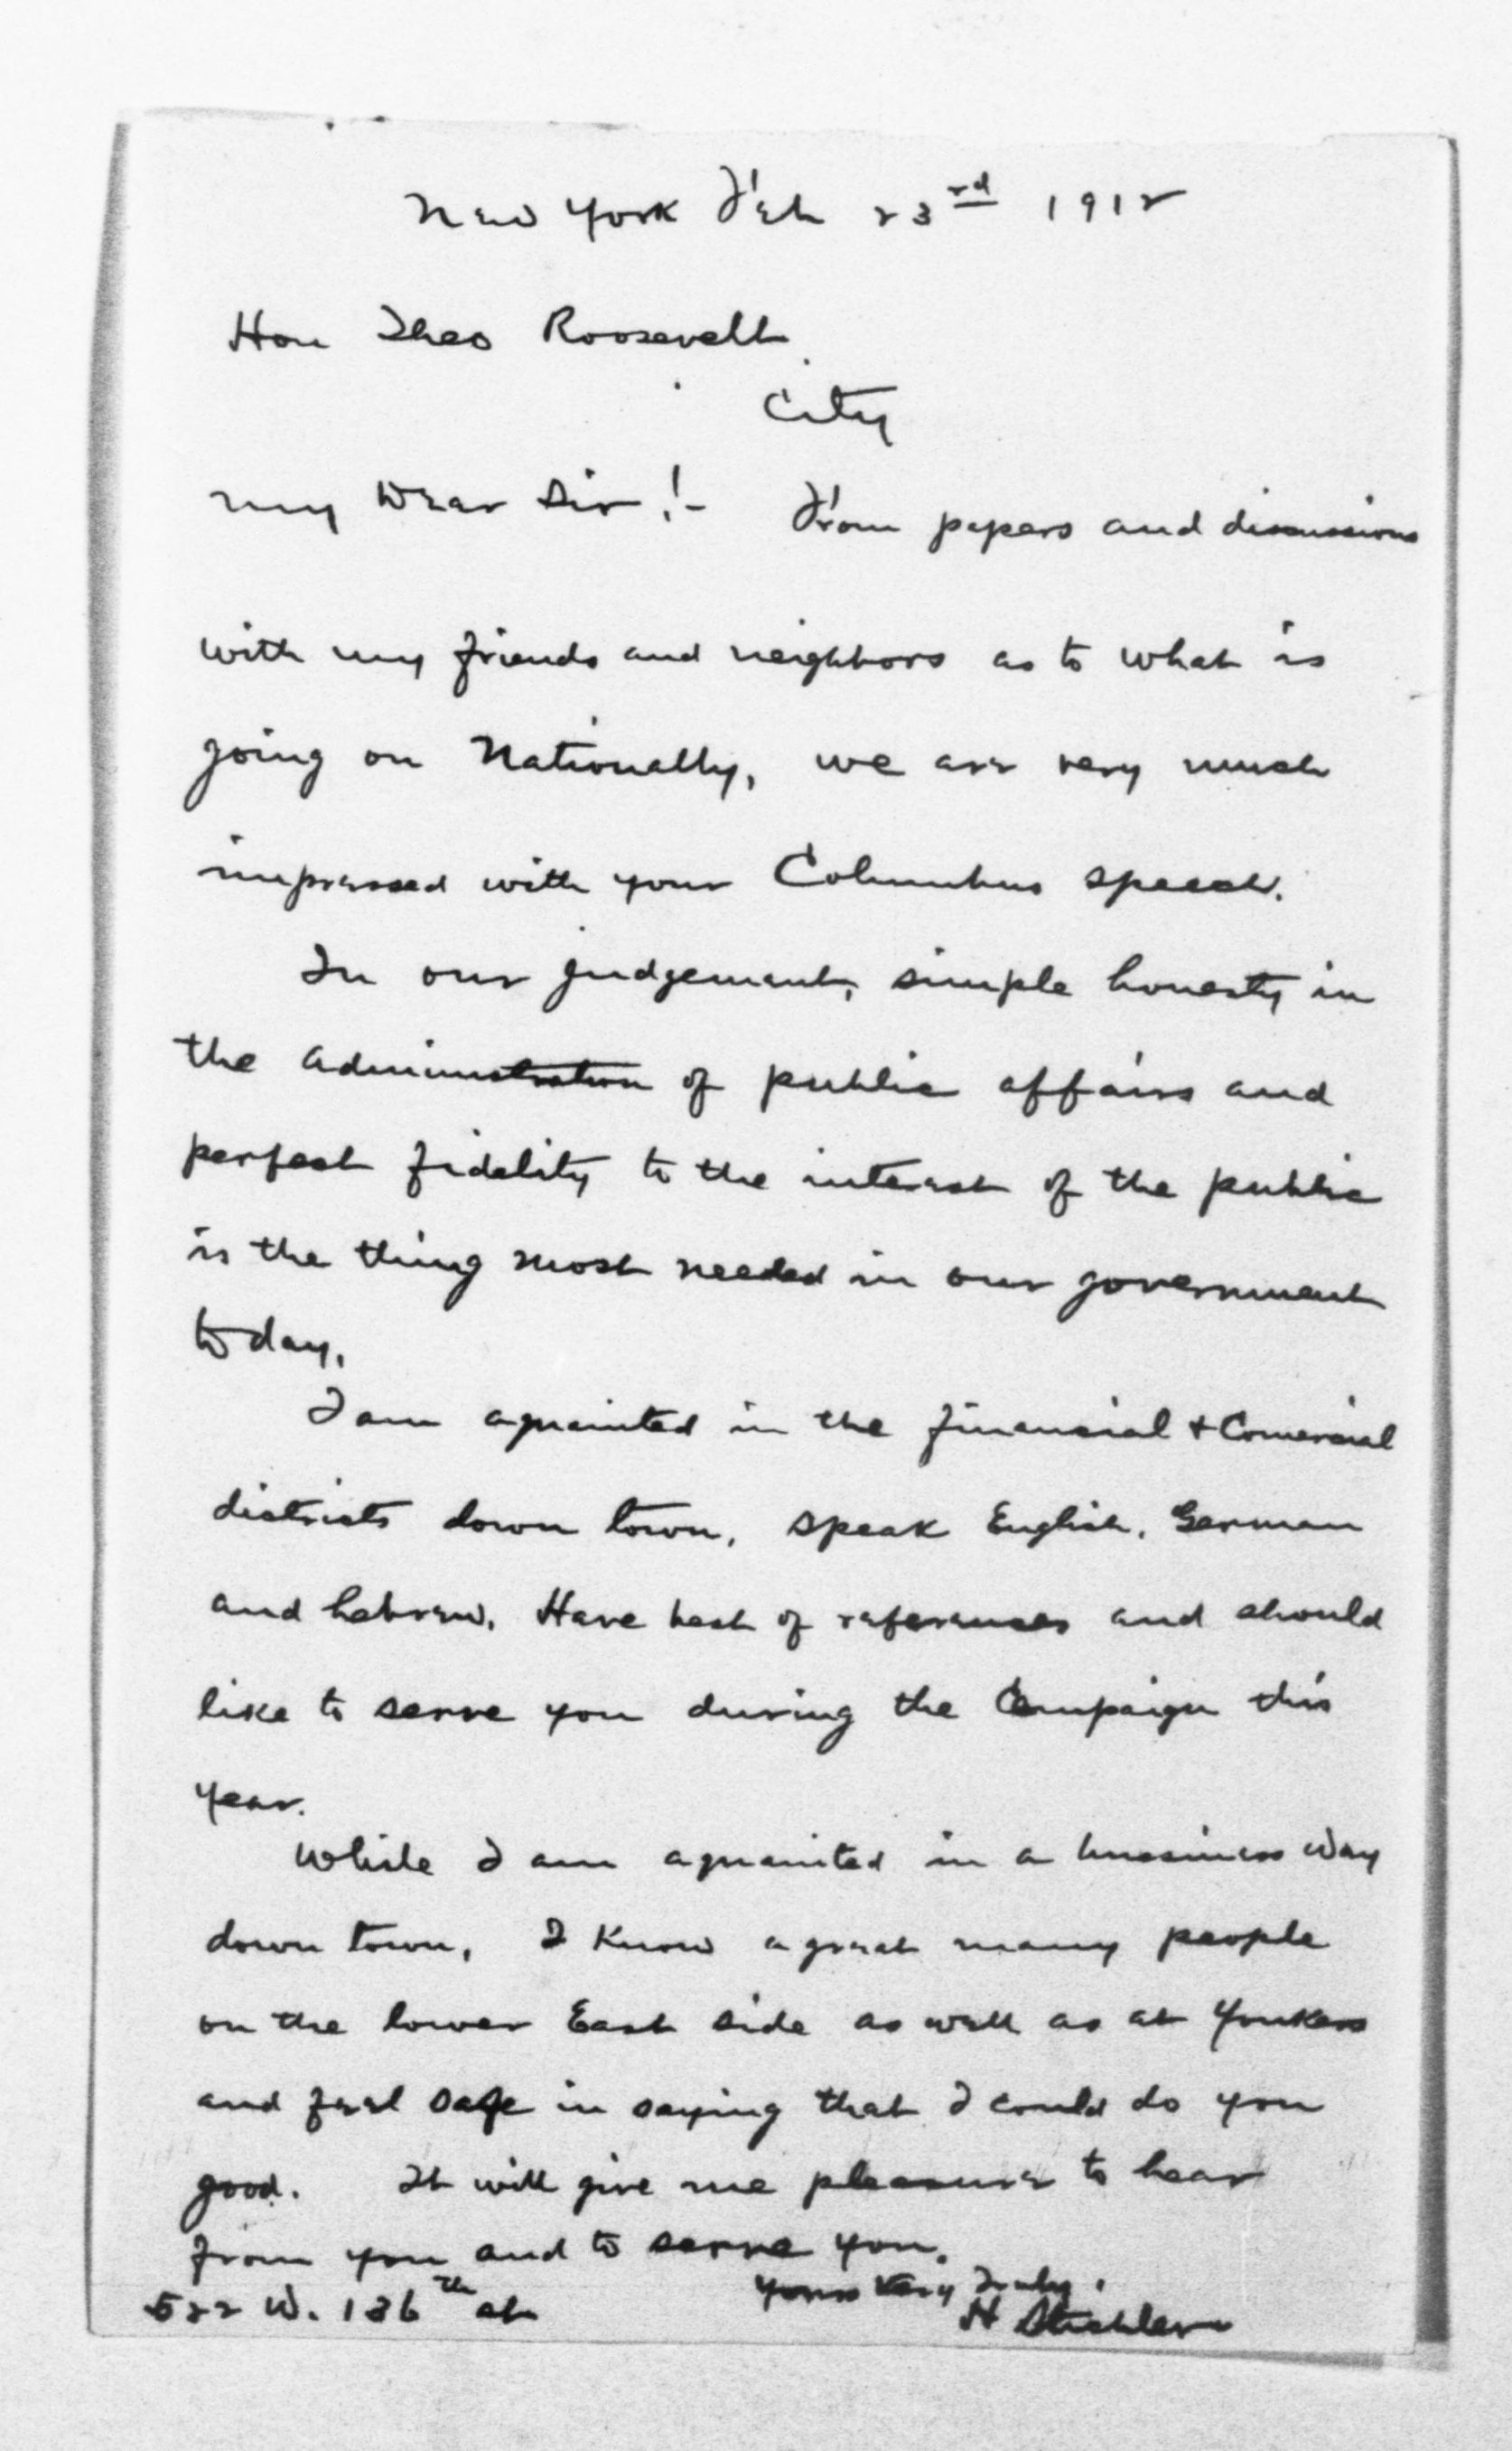 New York Feb 23rd 1912
Hon Theo Roosevelt
City
My Dear Sir!- From papers and discussions
with my friends and neighbors as to what is
going on Nationally, we are very much
impressed with your Columbus speech.
In our judgement, simple honesty in
the administration of public affairs and
perfect fidelity to the interest of the public
is the thing most needed in our government
today.
I am aquainted in the financial & Comercial
districts down town, speak English, German
and hebrew. Have best of references and should
like to serve you during the Campaign this
year.
While I am aquainted in a bussiness way
down town, I know a great many people
on the lower East side as well as at Yonkers
and feel safe in saying that I could do you
good. It will give me pleasure to hear
from you and to serve you.
Yours Very Truly,
522 W. 136th st
H